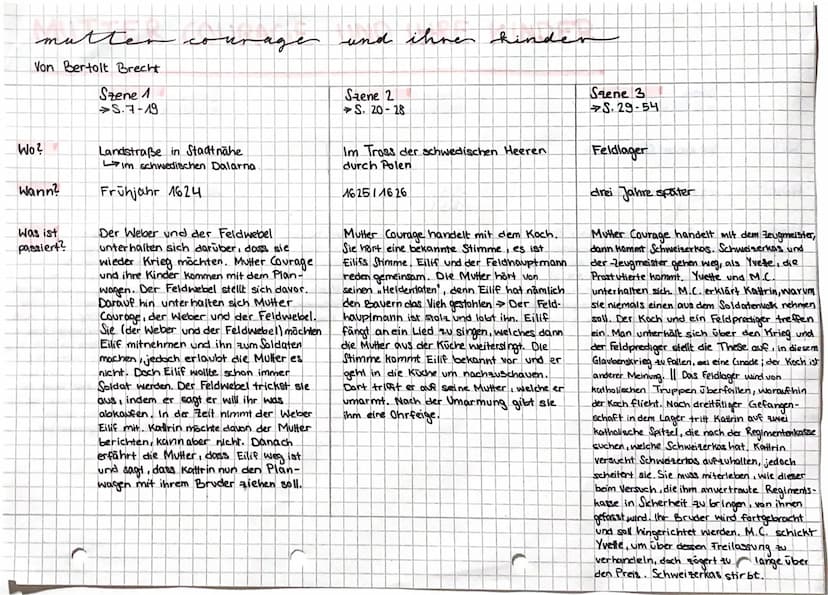 mutter courage und ihre kinder
Von Bertolt Brecht
Szene 1
→ S. 7-19
Szene 2
→ S. 20-28
Szene 3
→ S. 29-54
Wo?
Landstraße in Stadtnähe
↳ im schwedischen Dalarna
Im Tross der schwedischen Heeren
durch Polen
Feldlager
Wann?
Frühjahr 1624
1625/1626
drei Jahre später
Was ist
passiert?
Der Weber und der Feldwebel
unterhalten sich darüber, dass sie
wieder Krieg möchten. Mutter Courage
und ihre Kinder kommen mit dem Plan-
wagen. Der Feldwebel stellt sich davor.
Darauf hin unterhalten sich Mutter
Courage, der Weber und der Feldwebel.
Sie (der Weber und der Feldwebel) möchten
Eilif mitnehmen und ihn zum Soldaten
machen, jedoch erlaubt die Mutter es
nicht. Doch Eilif wollte schon immer
Soldat werden. Der Feldwebel trickst sie
aus, indem er sagt er will ihr was
abkaufen. In der Zeit nimmt der Weber
Eilif mit. Kattrin möchte davon der Mutter
berichten, kann aber nicht. Danach
erfährt die Mutter, dass Eilif weg ist
und sagt, dass Kattrin nun den Plan-
wagen mit ihrem Bruder ziehen soll.
Mutter Courage handelt mit dem Koch.
Sie hört eine bekannte Stimme, es ist
Eilifs Stimme. Eilif und der Feldhauptmann
reden gemeinsam. Die Mutter hört von
seinen "Heldentaten", denn Eilif hat nämlich
den Bauern das Vieh gestohlen → Der Feld-
hauptmann ist stolz und lobt ihn. Eilif
fängt an ein Lied zu singen, welches dann
die Mutter aus der Küche weitersingt. Die
Stimme kommt Eilif bekannt vor und er
geht in die Küche um nachzuschauen.
Dort trifft er auf seine Mutter, welche er
umarmt. Nach der Umarmung gibt sie
ihm eine Ohrfeige.
Mutter Courage handelt mit dem Zeugmeister,
dann kommt Schweizerkas. Schweizerkas und
der Zeugmeister gehen weg, als Yvette, die
Prostituierte kommt. Yvette und M.C.
unterhalten sich. M.C. erklärt Kattrin, warum
sie niemals einen aus dem Soldatenvolk nehmen
soll. Der Koch und ein Feldprediger treffen
ein. Man unterhält sich über den Krieg und
der Feldprediger stellt die These auf, in diesem
Glaubenskrieg zu fallen, sei eine Gnade; der Koch ist
anderer Meinung. || Das Feldlager wird von
katholischen Truppen überfallen, woraufhin
der Koch flieht. Nach dreitätiger Gefangen-
schaft in dem Lager trifft Kattrin auf zwei
katholische Spitzel, die nach der Regimentenkasse
suchen, welche Schweizerkas hat. Kattrin
versucht Schweizerkas aufzuhalten, jedoch
scheitert sie. Sie muss miterleben, wie dieser
beim Versuch, die ihm anvertraute Regiments-
kasse in Sicherheit zu bringen, von ihnen
gefasst wird. Ihr Bruder wird fortgebracht
und soll hingerichtet werden. M.C. schickt
Yvette, um über dessen Freilassung zu
verhandeln, doch zögert zu lange über
den Preis. Schweizerkas stirbt.